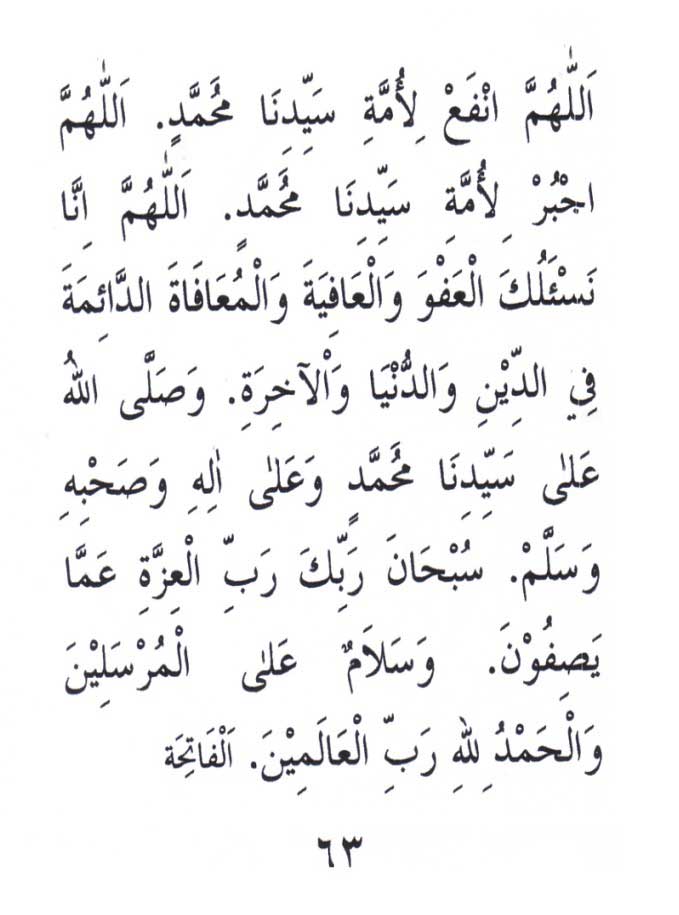 اَللّٰهُمَّ انْفَعْ لِأُمَّةِ سَيِّدِنَا مُحَمَّدٍ. اَللّٰهُمَّ
اجْبُرْ لِأُمَّةِ سَيِّدِنَا مُحَمَّدٍ. اَللّٰهُمَّ اِنَّا
نَسْئَلُكَ الْعَفْوَ وَالْعَافِيَةَ وَالْمُعَافَاةَ الدَّائِمَةَ
فِي الدِّيْنِ وَالدُّنْيَا وَاْلآخِرَةِ. وَصَلَّى اللهُ
عَلٰى سَيِّدِنَا مُحَمَّدٍ وَعَلٰى اٰلِهِ وَصَحْبِهِ
وَسَلَّمْ. سُبْحَانَ رَبِّكَ رَبِّ الْعِزَّةِ عَمَّا
يَصِفُوْنَ. وَسَلَامٌ عَلٰى الْمُرْسَلِيْنَ
وَالْحَمْدُ لِلهِ رَبِّ الْعَالَمِيْنَ. اَلْفَاتِحَة
٦٣